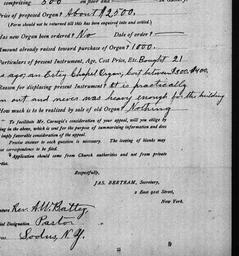 comprising 500 on floor and
Price of proposed Organ? About $2500.
(Form should not be returned till this has been enquired into and settled.)
Has new Organ been ordered? No Date of order?
Amount already raised toward purchase of Organ? 1000.
Particulars of present Instrument, Age, Cost Price, Etc. Bought 21
ago; an Estey Chapel Organ, Cost between $300 & $400.
Reason for displacing present Instrument? It is practically
out and never was heavy enough for the building
How much is to be realized by sale of old Organ? Nothing
To facilitate Mr. Carnegie's consideration of your appeal, will you oblige by
in the above, which is sent for the purpose of summarizing information and does
imply favorable consideration of the appeal.
Precise answer to each question is necessary. The leaving of blanks may
correspondence to be filed.
Application should come from Church authorities and not from private
parties.
Respectfully,
JAS. BERTRAM, Secretary,
2 East 91st Street,
New York.
Rev. A. W. Battey
Official Designation, Pastor
Sodus N.Y.